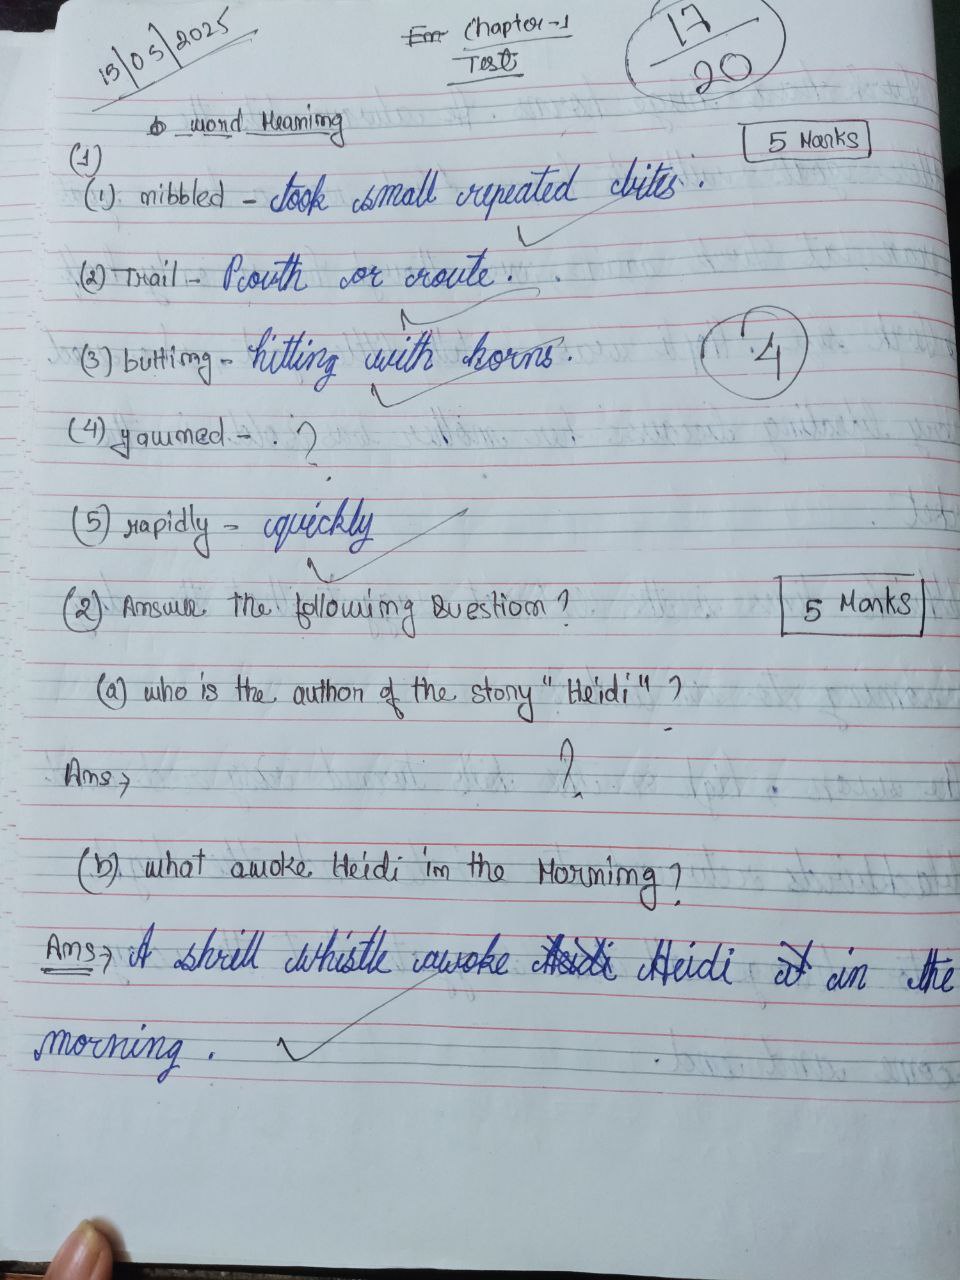 15/05/2025
Chapter-1
Test
17/20
Word Meaning
5 Marks
(1)
(1) nibbled - took small repeated bites.
(2) Trail - Pouth or route.
(3) butting - hitting with horns.
4
(4) yawned - ?
(5) rapidly - quickly
(2) Answer the following Question?
5 Marks
(a) who is the author of the story "Heidi"?
Ans→ ?
(b) what awoke Heidi in the Morning?
Ans→ A shrill whistle awoke Heidi Heidi at in the
morning.